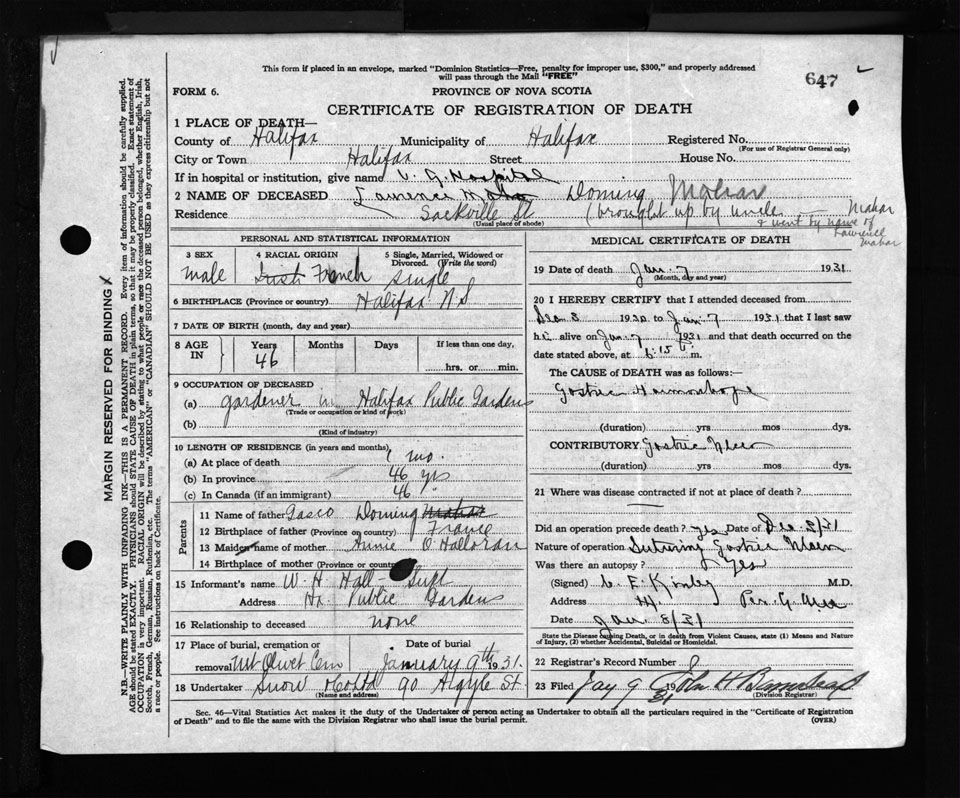 This form if placed in an envelope, marked "Dominion Statistics—Free, penalty for improper use, $300," and properly addressed
will pass through the Mail "FREE"
647
FORM 6.
PROVINCE OF NOVA SCOTIA
CERTIFICATE OF REGISTRATION OF DEATH
1 PLACE OF DEATH—
County of Halifax Municipality of Halifax Registered No.
(For use of Registrar General only)
City or Town Halifax Street House No.
If in hospital or institution, give name V. G. Hospital
2 NAME OF DECEASED Lawrence Doming Mahar
Residence Sackville St (brought up by uncle Mahar
(Usual place of abode)
& went by name of
Lawrence
Mahar
PERSONAL AND STATISTICAL INFORMATION
3 SEX 4 RACIAL ORIGIN 5 Single, Married, Widowed or Divorced. (Write the word)
male Irish French single
6 BIRTHPLACE (Province or country) Halifax N.S
7 DATE OF BIRTH (month, day and year)
8 AGE IN Years Months Days If less than one day,
46 hrs. or min.
9 OCCUPATION OF DECEASED
(a) gardener in Halifax Public Gardens
(Trade or occupation or kind of work)
(b)
(Kind of industry)
10 LENGTH OF RESIDENCE (in years and months)
(a) At place of death 1 mo.
(b) In province 46 yrs
(c) In Canada (if an immigrant) 46 "
Parents
11 Name of father Gasco Doming Mahar
12 Birthplace of father (Province or country) France
13 Maiden name of mother Annie O'Halloran
14 Birthplace of mother (Province or country)
15 Informant's name W. H. Hall - Supt
Address Hx Public Gardens
16 Relationship to deceased none
17 Place of burial, cremation or removal Mt Olivet Cem Date of burial January 9th 1931.
18 Undertaker Snow & Co Ltd 90 Argyle St.
(Name and address)
MEDICAL CERTIFICATE OF DEATH
19 Date of death Jan. 7 1931.
(Month, day and year)
20 I HEREBY CERTIFY that I attended deceased from
Dec 8 1930 to Jan 7 1931 that I last saw
h alive on Jan. 7 1931 and that death occurred on the
date stated above, at 6.15 m.
The CAUSE of DEATH was as follows:—
Gastric Haemorrhage
(duration) yrs mos dys.
CONTRIBUTORY Gastric Ulcer
(duration) yrs mos dys.
21 Where was disease contracted if not at place of death?
Did an operation precede death? yes Date of Dec 8/31
Nature of operation Suturing Gastric Ulcer
Was there an autopsy? Yes
(Signed) M.D.
Address Hx.
Date Jan 8/31
State the Disease causing Death, or in death from Violent Causes, state (1) Means and Nature
of Injury, (2) whether Accidental, Suicidal or Homicidal.
22 Registrar's Record Number
23 Filed Jany 9 1931 John H
(Division Registrar)
Sec. 46—Vital Statistics Act makes it the duty of the Undertaker or person acting as Undertaker to obtain all the particulars required in the "Certificate of Registration
of Death" and to file the same with the Division Registrar who shall issue the burial permit.
(OVER)
MARGIN RESERVED FOR BINDING
N.B.—WRITE PLAINLY WITH UNFADING INK—THIS IS A PERMANENT RECORD. Every item of information should be carefully supplied.
AGE should be stated EXACTLY. PHYSICIANS should STATE CAUSE OF DEATH in plain terms, so that it may be properly classified. Exact statement of
OCCUPATION is very important. RACIAL ORIGIN will be described by stating to what people or race the deceased person belonged, whether English, Irish,
Scotch, French, German, Russian, Ruthenian, etc. The terms "AMERICAN" or "CANADIAN" SHOULD NOT BE USED as they express citizenship but not
a race or people. See instructions on back of Certificate.